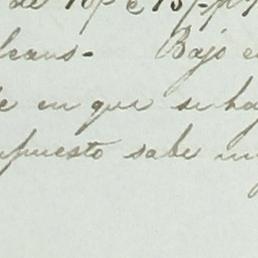 de 18 p
leans. Bajo e
e en que se ha
upuesto sabe